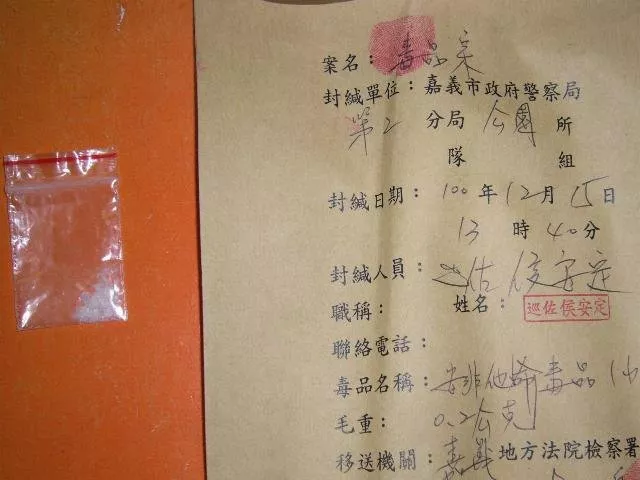 案名：毒品案
封緘單位：嘉義市政府警察局
第2分局公園所
隊 組
封緘日期：100年12月15日
13時40分
封緘人員：巡佐侯安定
職稱： 姓名：巡佐侯安定
聯絡電話：
毒品名稱：安非他命毒品1小
毛重：0.2公克
移送機關：嘉義地方法院檢察署